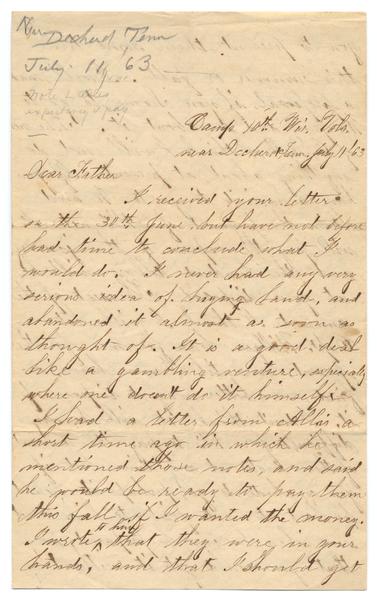 Decherd Tenn
July 11, 63
Camp 10th Wis. Vols.
near Decherd, Tenn, July 11 '63
Dear Father
I received your letter
on the 30th June, but have not before
had time to conclude what I
would do. I never had any very
serious idea of buying land, and
abandoned it almost as soon as
thought of. It is a good deal
like a gambling venture, especially
where one doesn't do it himself.
I had a letter from a
short time ago in which he
mentioned those notes, and said
he would be ready to pay them
this fall if I wanted the money.
I wrote to him that they were in your
hands, and that I should get